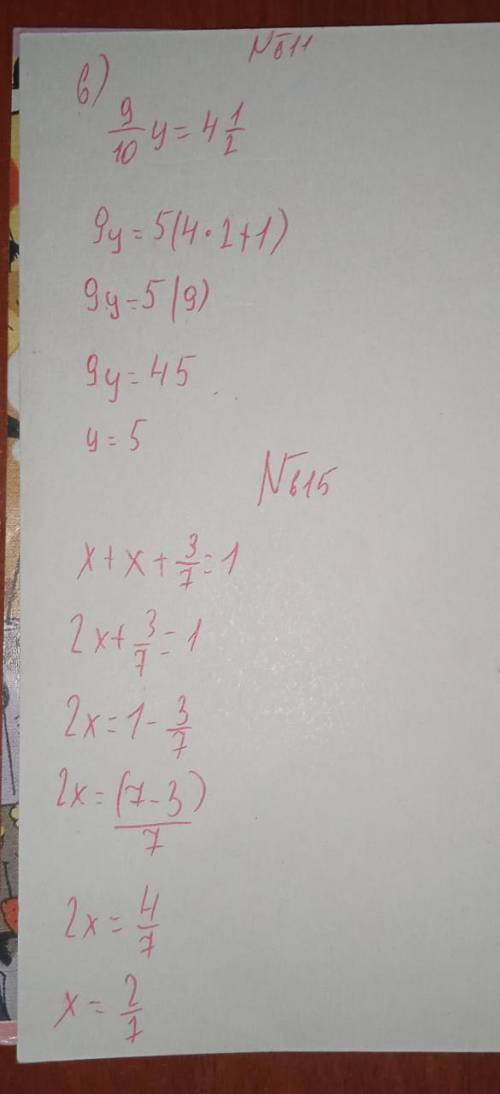 №611
в)
9/10 y = 4 1/2
9y = 5(4·2+1)
9y = 5(9)
9y = 45
y = 5
№615
x + x + 3/7 = 1
2x + 3/7 = 1
2x = 1 - 3/7
2x = (7-3)/7
2x = 4/7
x = 2/7